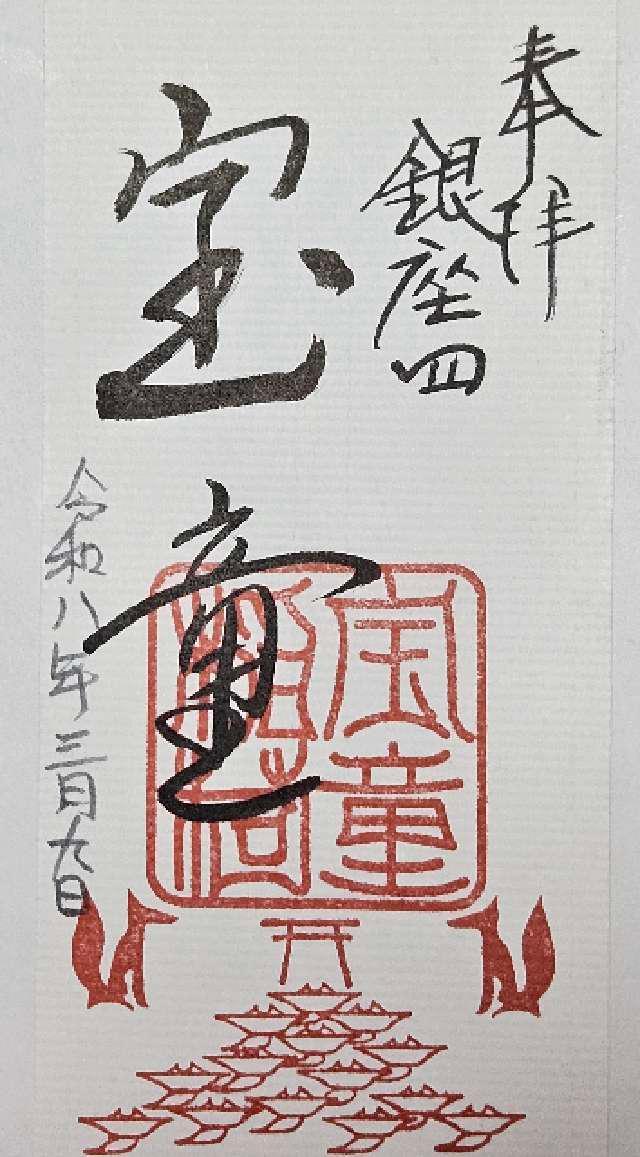 奉拝
銀座四
宝童
令和八年三月九日
宝童
稲荷